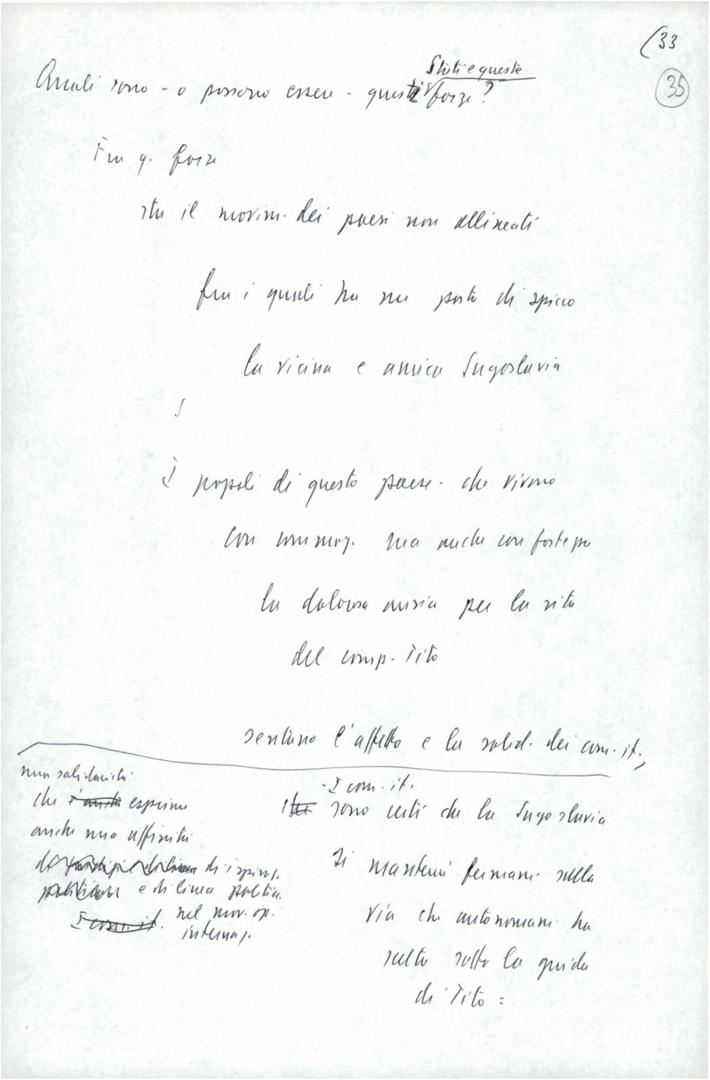 (33
35
Stati e queste
Quali sono - o possono essere - questi forze?
Fra q. forze
sta il movim. dei paesi non allineati
fra i quali ha un posto di spicco
la vicina e amica Jugoslavia
I popoli di questo paese - che vivono
con commoz. ma anche con forte
la dolorosa ansia per la vita
del comp. Tito
sentano l'affetto e la solid. dei com. it.,
una solidarietà
che esprime
anche una affinità
di ispiraz.
politica e di linea politica
nel mov. op.
internaz.
- I com. it.
sono certi che la Jugoslavia
si manterrà fermam. sulla
via che autonomam. ha
scelto sotto la guida
di Tito =